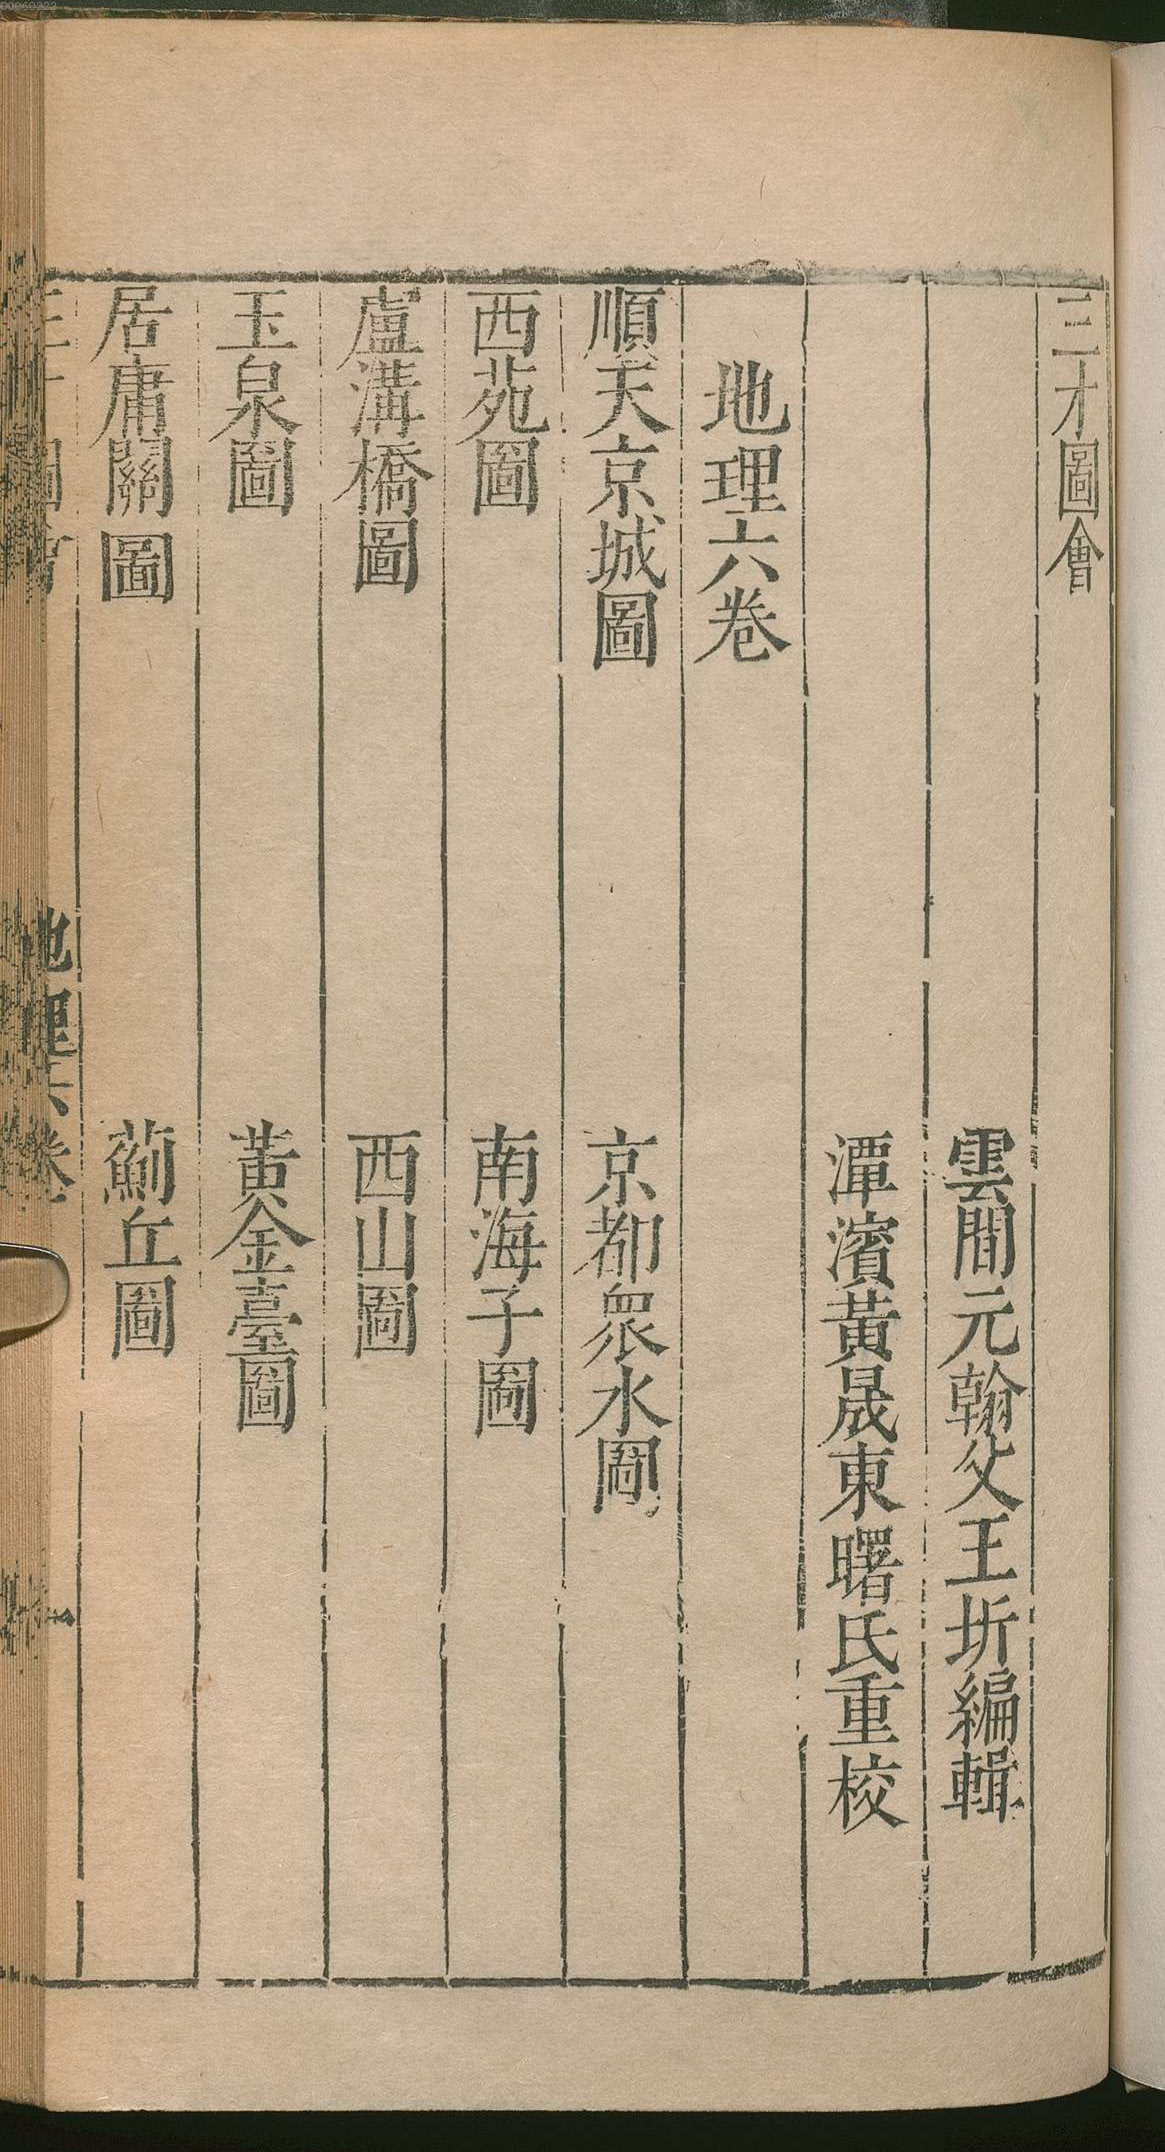 00069322
三才圖會
雲間元翰父王圻編輯
潭濱黃晟東曙氏重校
地理六卷
順天京城圖 京都衆水圖
西苑圖 南海子圖
盧溝橋圖 西山圖
玉泉圖 黃金臺圖
居庸關圖 薊丘圖
地理六卷